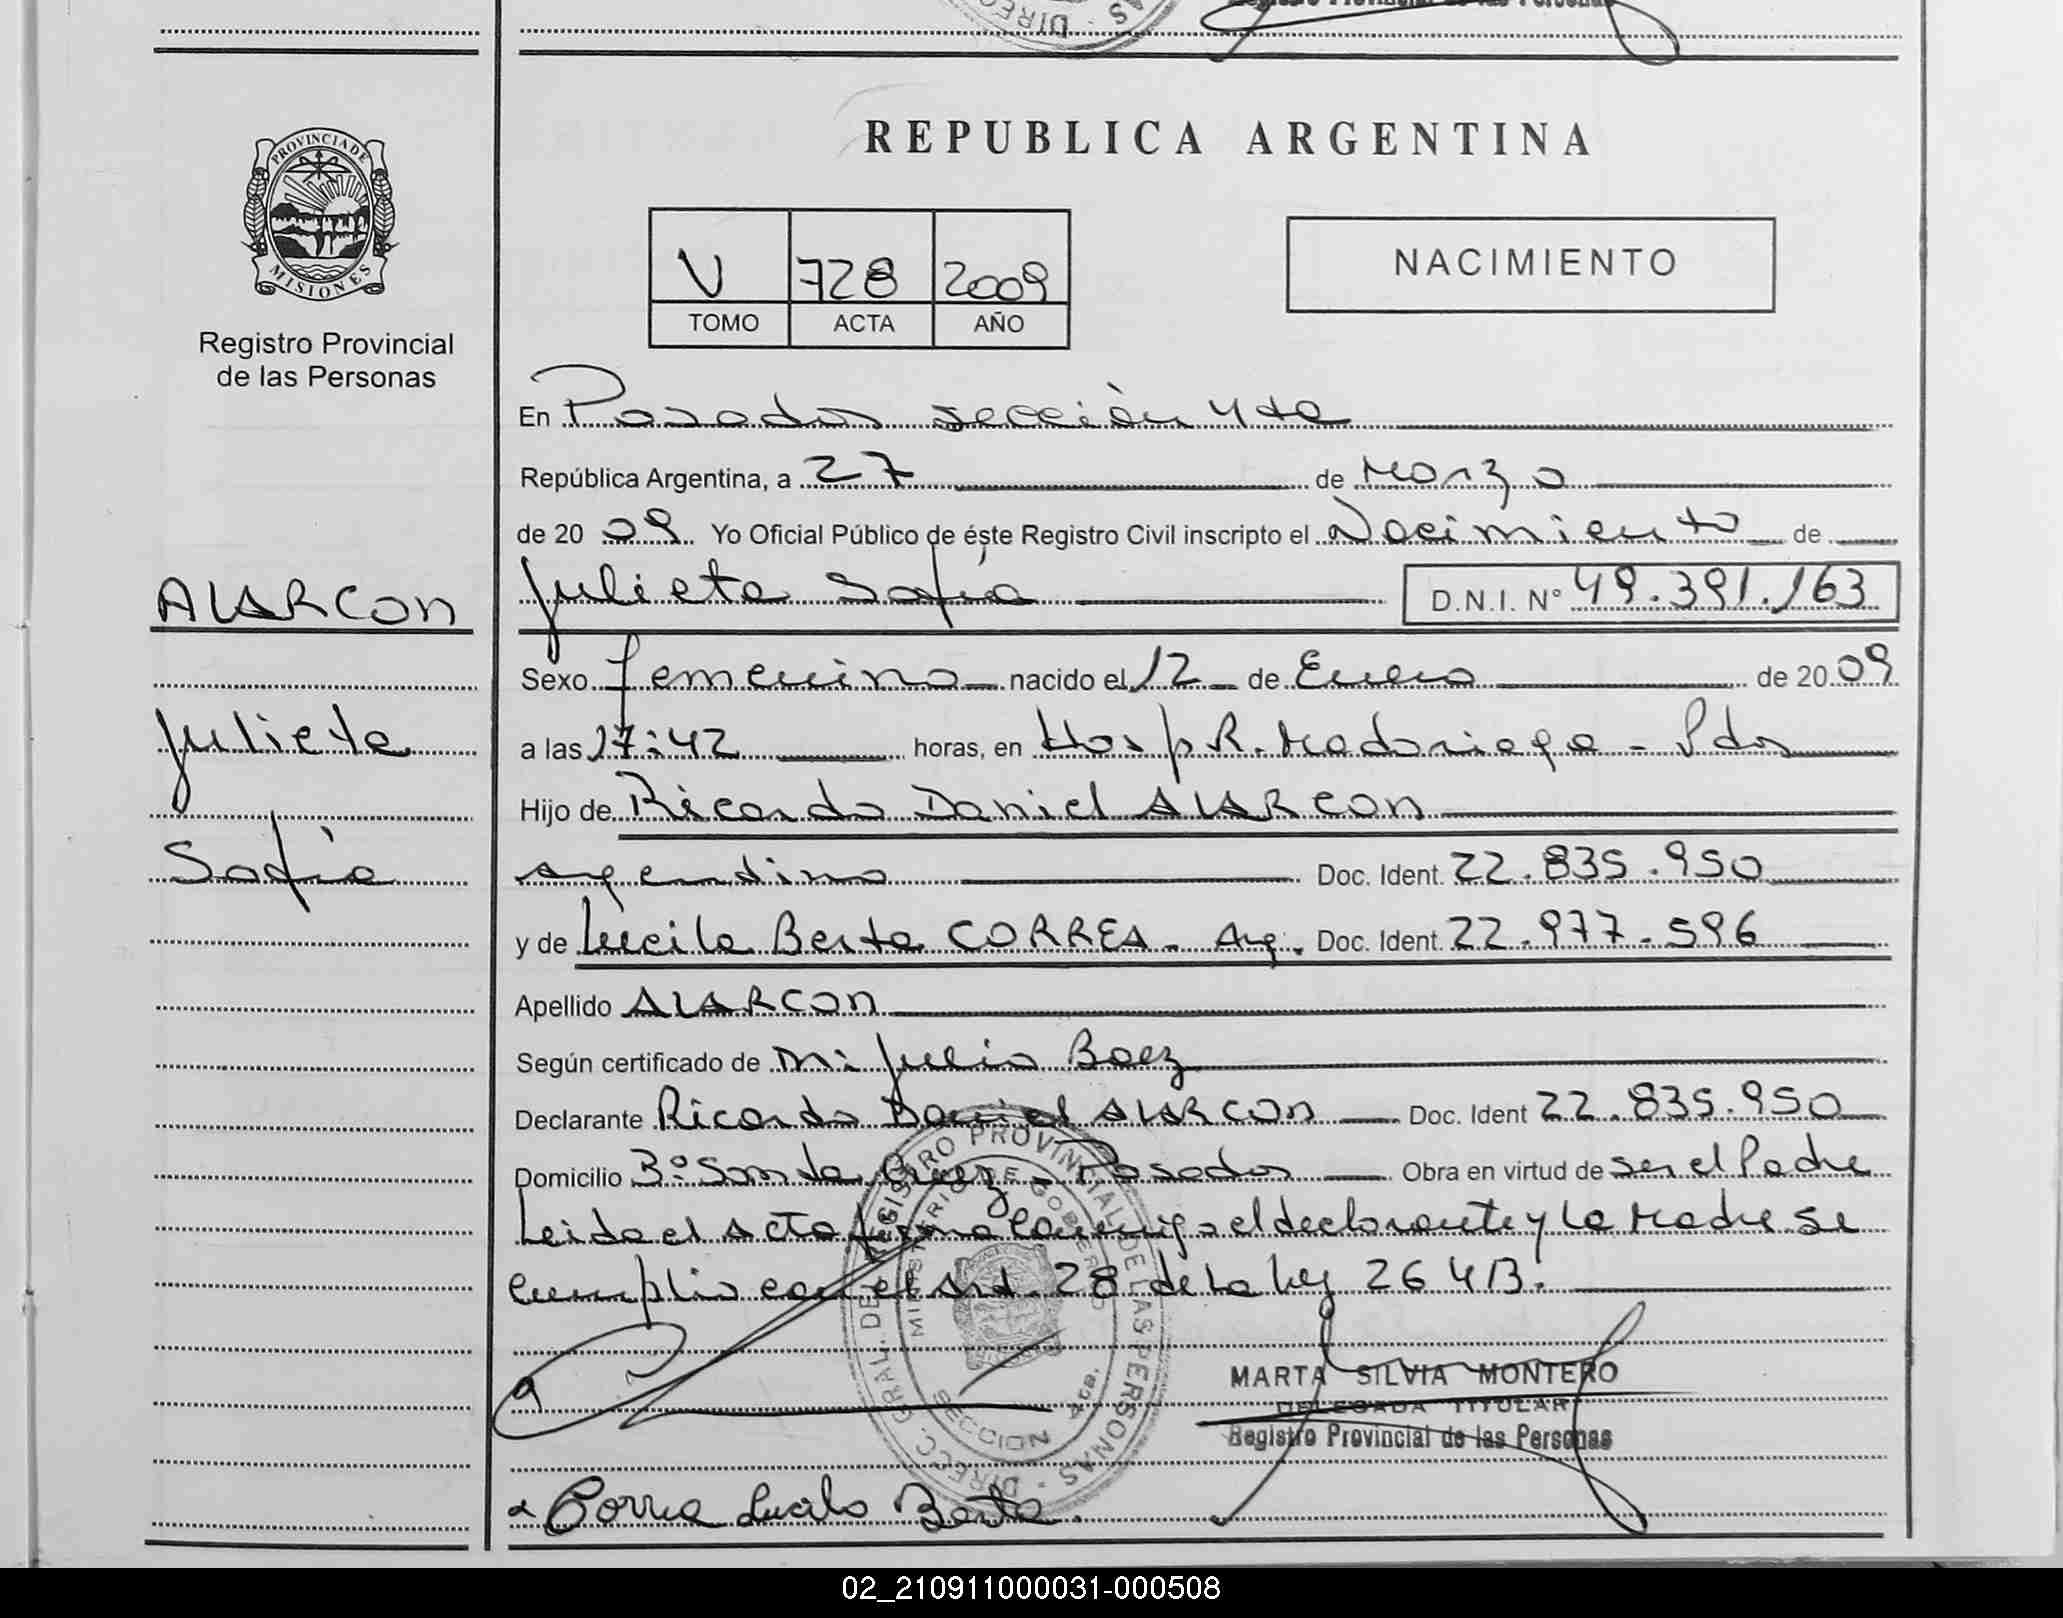 Registro Provincial de las Personas
PROVINCIA DE
MISIONES
Registro Provincial
de las Personas
ALARCON
Julieta
Sofía
REPUBLICA ARGENTINA
V 728 2009
TOMO ACTA AÑO
NACIMIENTO
En Posadas sección 4ta
República Argentina, a 27 de Marzo
de 20 09 Yo Oficial Público de éste Registro Civil inscripto el Nacimiento de
Julieta Sofía D.N.I. N° 49.391.163
Sexo femenino nacido el 12 de Enero de 20 09
a las 17:42 horas, en Hosp R. Madariaga - Pdas
Hijo de Ricardo Daniel ALARCON
argentino Doc. Ident. 22.835.950
y de Lucila Berta CORREA - Arg. Doc. Ident. 22.977.596
Apellido ALARCON
Según certificado de Julio Baez
Declarante Ricardo Daniel ALARCON Doc. Ident 22.835.950
Domicilio B° Santa Cruz - Posadas Obra en virtud de ser el Padre
Leida el acta firma conmigo el declarante y la Madre se
cumplio con el art. 28 de la ley 26 413.
DIREC. GRAL. DE REGISTRO PROVINCIAL DE LAS PERSONAS
MINISTERIO DE GOBIERNO
SECCION 4ta.
MARTA SILVIA MONTERO
DELEGADA TITULAR
Registro Provincial de las Personas
Correa Lucila Berta.
02_210911000031-000508